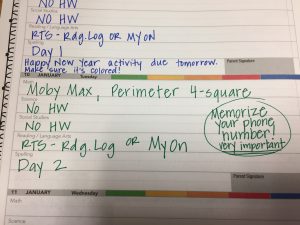 NO HW
Social Studies
NO HW
Reading / Language Arts
RTS - Rdg. Log OR MyON
Spelling
Day 1
Happy New Year activity due tomorrow.
Make sure it's colored!
Parent Signature
10 JANUARY Tuesday
Moby Max, Perimeter 4-square
Science
NO HW
Social Studies
NO HW
Reading / Language Arts
RTS - Rdg. Log OR MyOn
Spelling
Day 2
Memorize
your phone
number!
very important
Parent Signature
11 JANUARY Wednesday
Math
Science